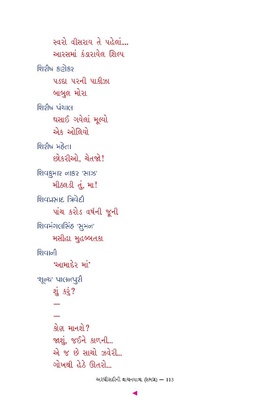 સ્વરો વીસરાય તે પહેલાં...
આરસમાં કંડારાયેલ શિલ્પ
શિરીષ કણેકર
પડદા પરની પાકીઝા
બાબુલ મોરા
શિરીષ પંચાલ
ઘસાઈ ગયેલાં મૂલ્યો
એક ઓલિયો
શિરીષ મહેતા
છોકરીઓ, ચેતજો!
શિવકુમાર નાકર ‘સાઝ’
મીઠલડી તું, મા!
શિવપ્રસાદ ત્રિવેદી
પાંચ કરોડ વર્ષની જૂની
શિવમંગલસિંહ ‘સુમન’
મસીહા મુહબ્બતકા
શિવાની
‘આમાદેર માં’
‘શૂન્ય’ પાલનપુરી
શું કરું?
—
—
કોણ માનશે?
જાશું, જઈને કાળની...
એ જ છે સાચો ઝવેરી...
ગોખથી હેઠે ઊતરો...
અરધી સદીની વાચનયાત્રા — 113